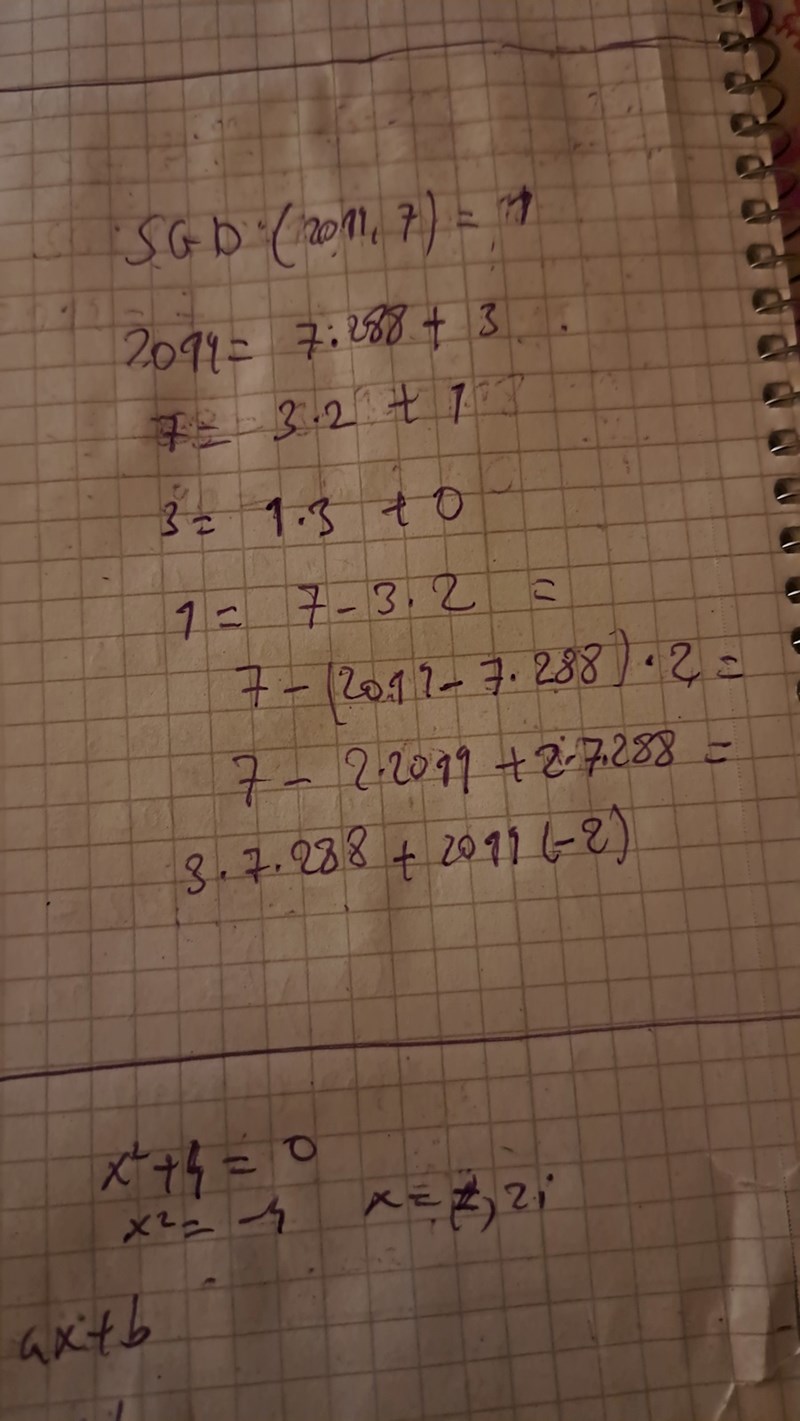 SGD (2011, 7) = 1
2011 = 7·288 + 3
7 = 3·2 + 1
3 = 1·3 + 0
1 = 7 - 3·2 =
7 - (2011 - 7·288)·2 =
7 - 2·2011 + 2·7·288 =
3·7·288 + 2011 (-2)
x² + 4 = 0
x² = -4 x = , 2i
ax + b